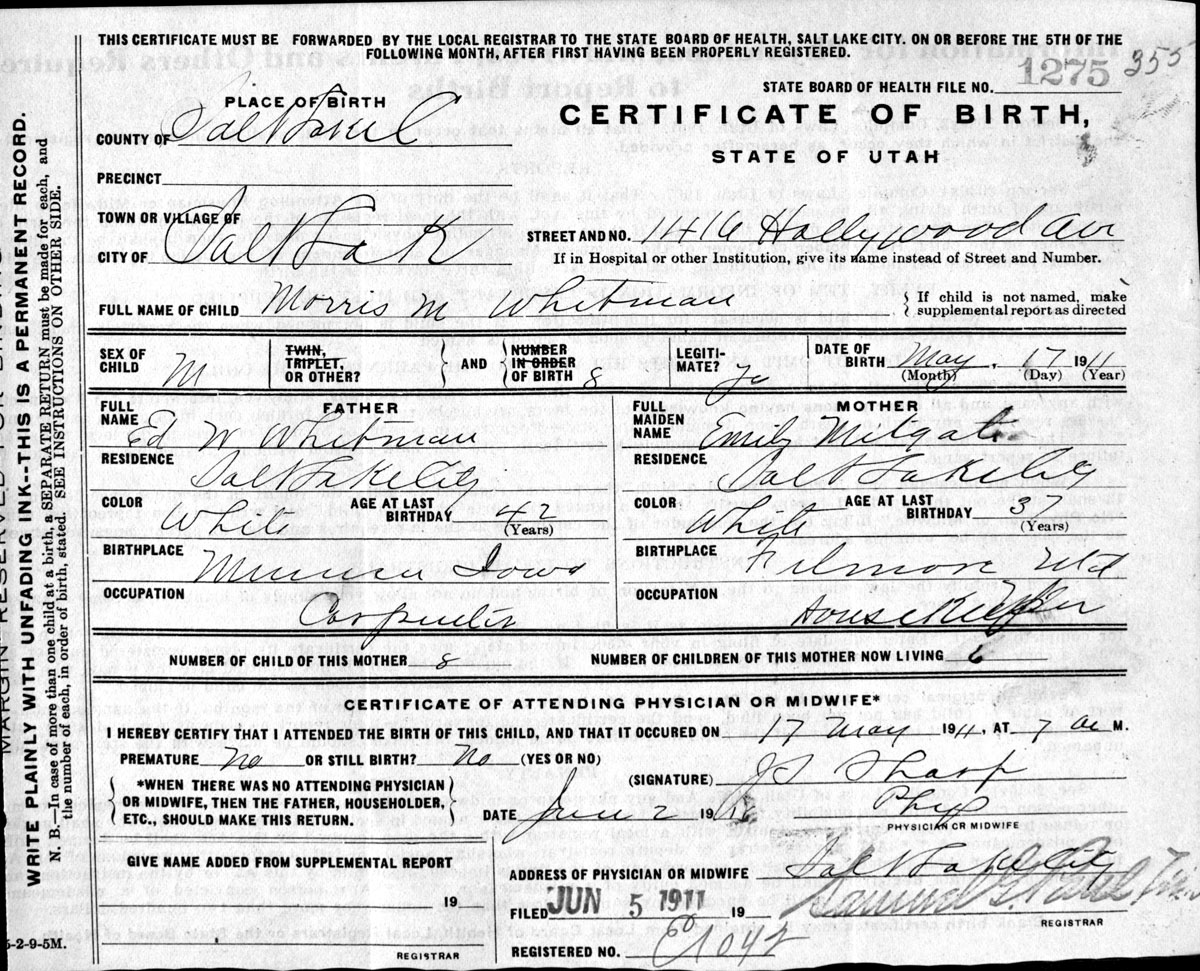 THIS CERTIFICATE MUST BE FORWARDED BY THE LOCAL REGISTRAR TO THE STATE BOARD OF HEALTH, SALT LAKE CITY. ON OR BEFORE THE 5TH OF THE
FOLLOWING MONTH, AFTER FIRST HAVING BEEN PROPERLY REGISTERED.
STATE BOARD OF HEALTH FILE NO. 1275 355
PLACE OF BIRTH
CERTIFICATE OF BIRTH,
STATE OF UTAH
COUNTY OF Salt Lake
PRECINCT
TOWN OR VILLAGE OF
CITY OF Salt Lak
STREET AND NO. 1416 Hollywood Av
If in Hospital or other Institution, give its name instead of Street and Number.
FULL NAME OF CHILD Morris M Whitman
If child is not named, make
supplemental report as directed
SEX OF CHILD M
TWIN, TRIPLET, OR OTHER?
AND
NUMBER IN ORDER OF BIRTH 8
LEGITI-MATE?
DATE OF BIRTH May 17 1911
(Month) (Day) (Year)
FATHER
FULL NAME Ed W Whitman
RESIDENCE Salt Lake City
COLOR White
AGE AT LAST BIRTHDAY 42 (Years)
BIRTHPLACE Iowa
OCCUPATION Carpenter
MOTHER
FULL MAIDEN NAME Emily
RESIDENCE Salt Lake City
COLOR White
AGE AT LAST BIRTHDAY 37 (Years)
BIRTHPLACE Filmore
OCCUPATION Housekeeper
NUMBER OF CHILD OF THIS MOTHER 8
NUMBER OF CHILDREN OF THIS MOTHER NOW LIVING 6
CERTIFICATE OF ATTENDING PHYSICIAN OR MIDWIFE*
I HEREBY CERTIFY THAT I ATTENDED THE BIRTH OF THIS CHILD, AND THAT IT OCCURED ON 17 May 1911, AT 7 a M.
PREMATURE No OR STILL BIRTH? No (YES OR NO)
(SIGNATURE) Sharp
*WHEN THERE WAS NO ATTENDING PHYSICIAN
OR MIDWIFE, THEN THE FATHER, HOUSEHOLDER,
ETC., SHOULD MAKE THIS RETURN.
DATE June 2 19
Phys
PHYSICIAN OR MIDWIFE
GIVE NAME ADDED FROM SUPPLEMENTAL REPORT
19
REGISTRAR
ADDRESS OF PHYSICIAN OR MIDWIFE Salt Lake City
FILED JUN 5 1911 19
REGISTRAR
REGISTERED NO. 1042
5-2-9-5M.
MARGIN RESERVED FOR BINDING
WRITE PLAINLY WITH UNFADING INK--THIS IS A PERMANENT RECORD.
N. B.--In case of more than one child at a birth, a SEPARATE RETURN must be made for each, and
the number of each, in order of birth, stated. SEE INSTRUCTIONS ON OTHER SIDE.